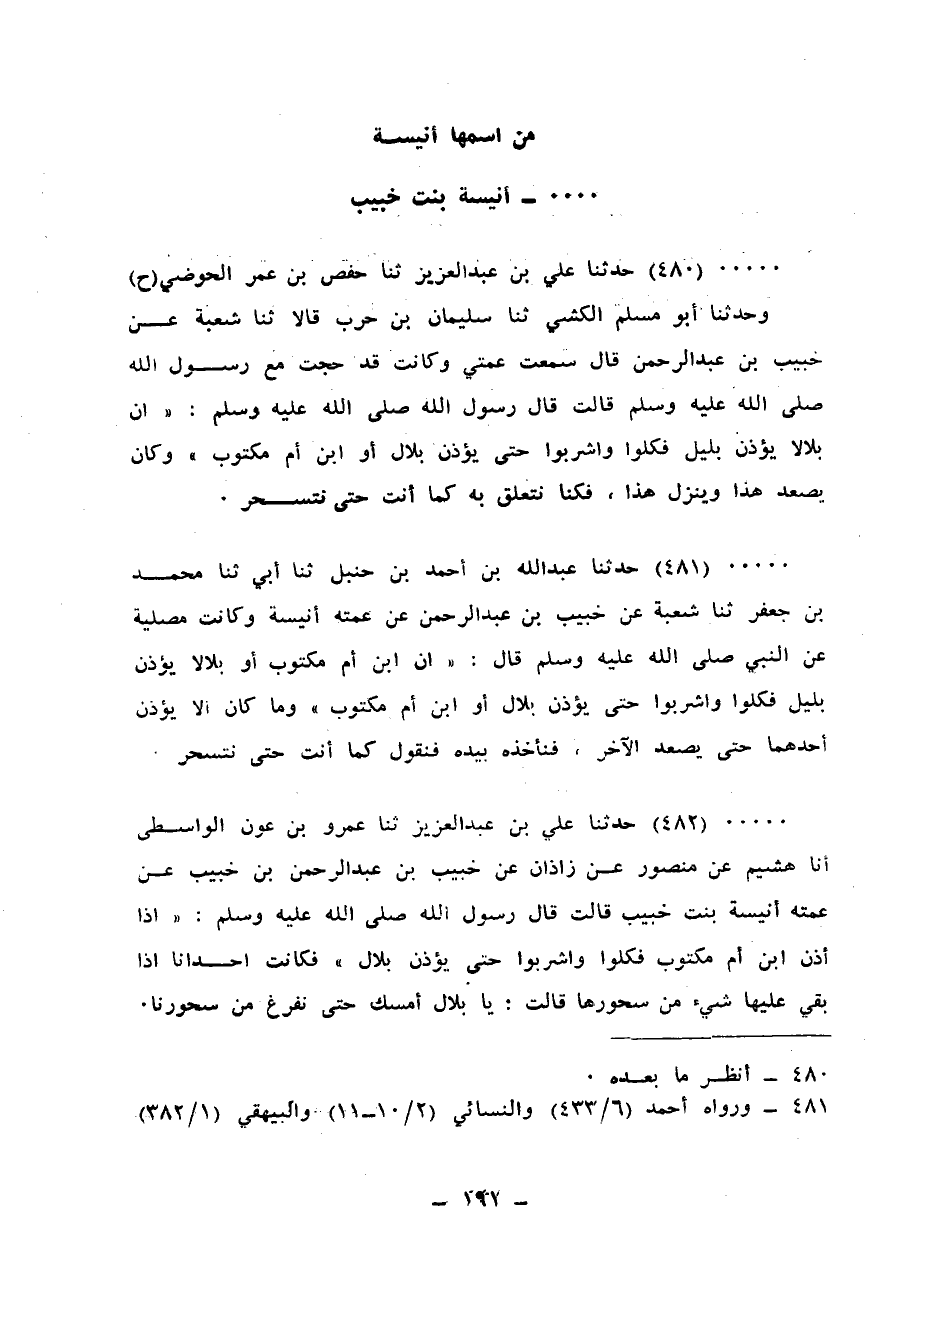 من اسمها أنيسة
٠٠٠٠ ـ أنيسة بنت خبيب
٠٠٠٠٠ (٤٨٠) حدثنا علي بن عبدالعزيز ثنا حفص بن عمر الحوضي(ح)
وحدثنا أبو مسلم الكشي ثنا سليمان بن حرب قالا ثنا شعبة عن
خبيب بن عبدالرحمن قال سمعت عمتي وكانت قد حجت مع رسول الله
صلى الله عليه وسلم قالت قال رسول الله صلى الله عليه وسلم : « ان
بلالا يؤذن بليل فكلوا واشربوا حتى يؤذن بلال أو ابن أم مكتوب » وكان
يصعد هذا وينزل هذا ، فكنا نتعلق به كما أنت حتى نتسحر ٠
٠٠٠٠٠ (٤٨١) حدثنا عبدالله بن أحمد بن حنبل ثنا أبي ثنا محمد
بن جعفر ثنا شعبة عن خبيب بن عبدالرحمن عن عمته أنيسة وكانت مصلية
عن النبي صلى الله عليه وسلم قال : « ان ابن أم مكتوب أو بلالا يؤذن
بليل فكلوا واشربوا حتى يؤذن بلال أو ابن أم مكتوب » وما كان الا يؤذن
أحدهما حتى يصعد الآخر ، فنأخذه بيده فنقول كما أنت حتى نتسحر ٠
٠٠٠٠٠ (٤٨٢) حدثنا علي بن عبدالعزيز ثنا عمرو بن عون الواسطى
أنا هشيم عن منصور عن زاذان عن خبيب بن عبدالرحمن بن خبيب عن
عمته أنيسة بنت خبيب قالت قال رسول الله صلى الله عليه وسلم : « اذا
أذن ابن أم مكتوب فكلوا واشربوا حتى يؤذن بلال » فكانت احدانا اذا
بقي عليها شيء من سحورها قالت : يا بلال أمسك حتى نفرغ من سحورنا٠
٤٨٠ ـ أنظر ما بعده ٠
٤٨١ ـ ورواه أحمد (٤٣٣/٦) والنسائي (١٠/٢ـ١١) والبيهقي (٣٨٢/١)
ـ ٢٩٧ ـ